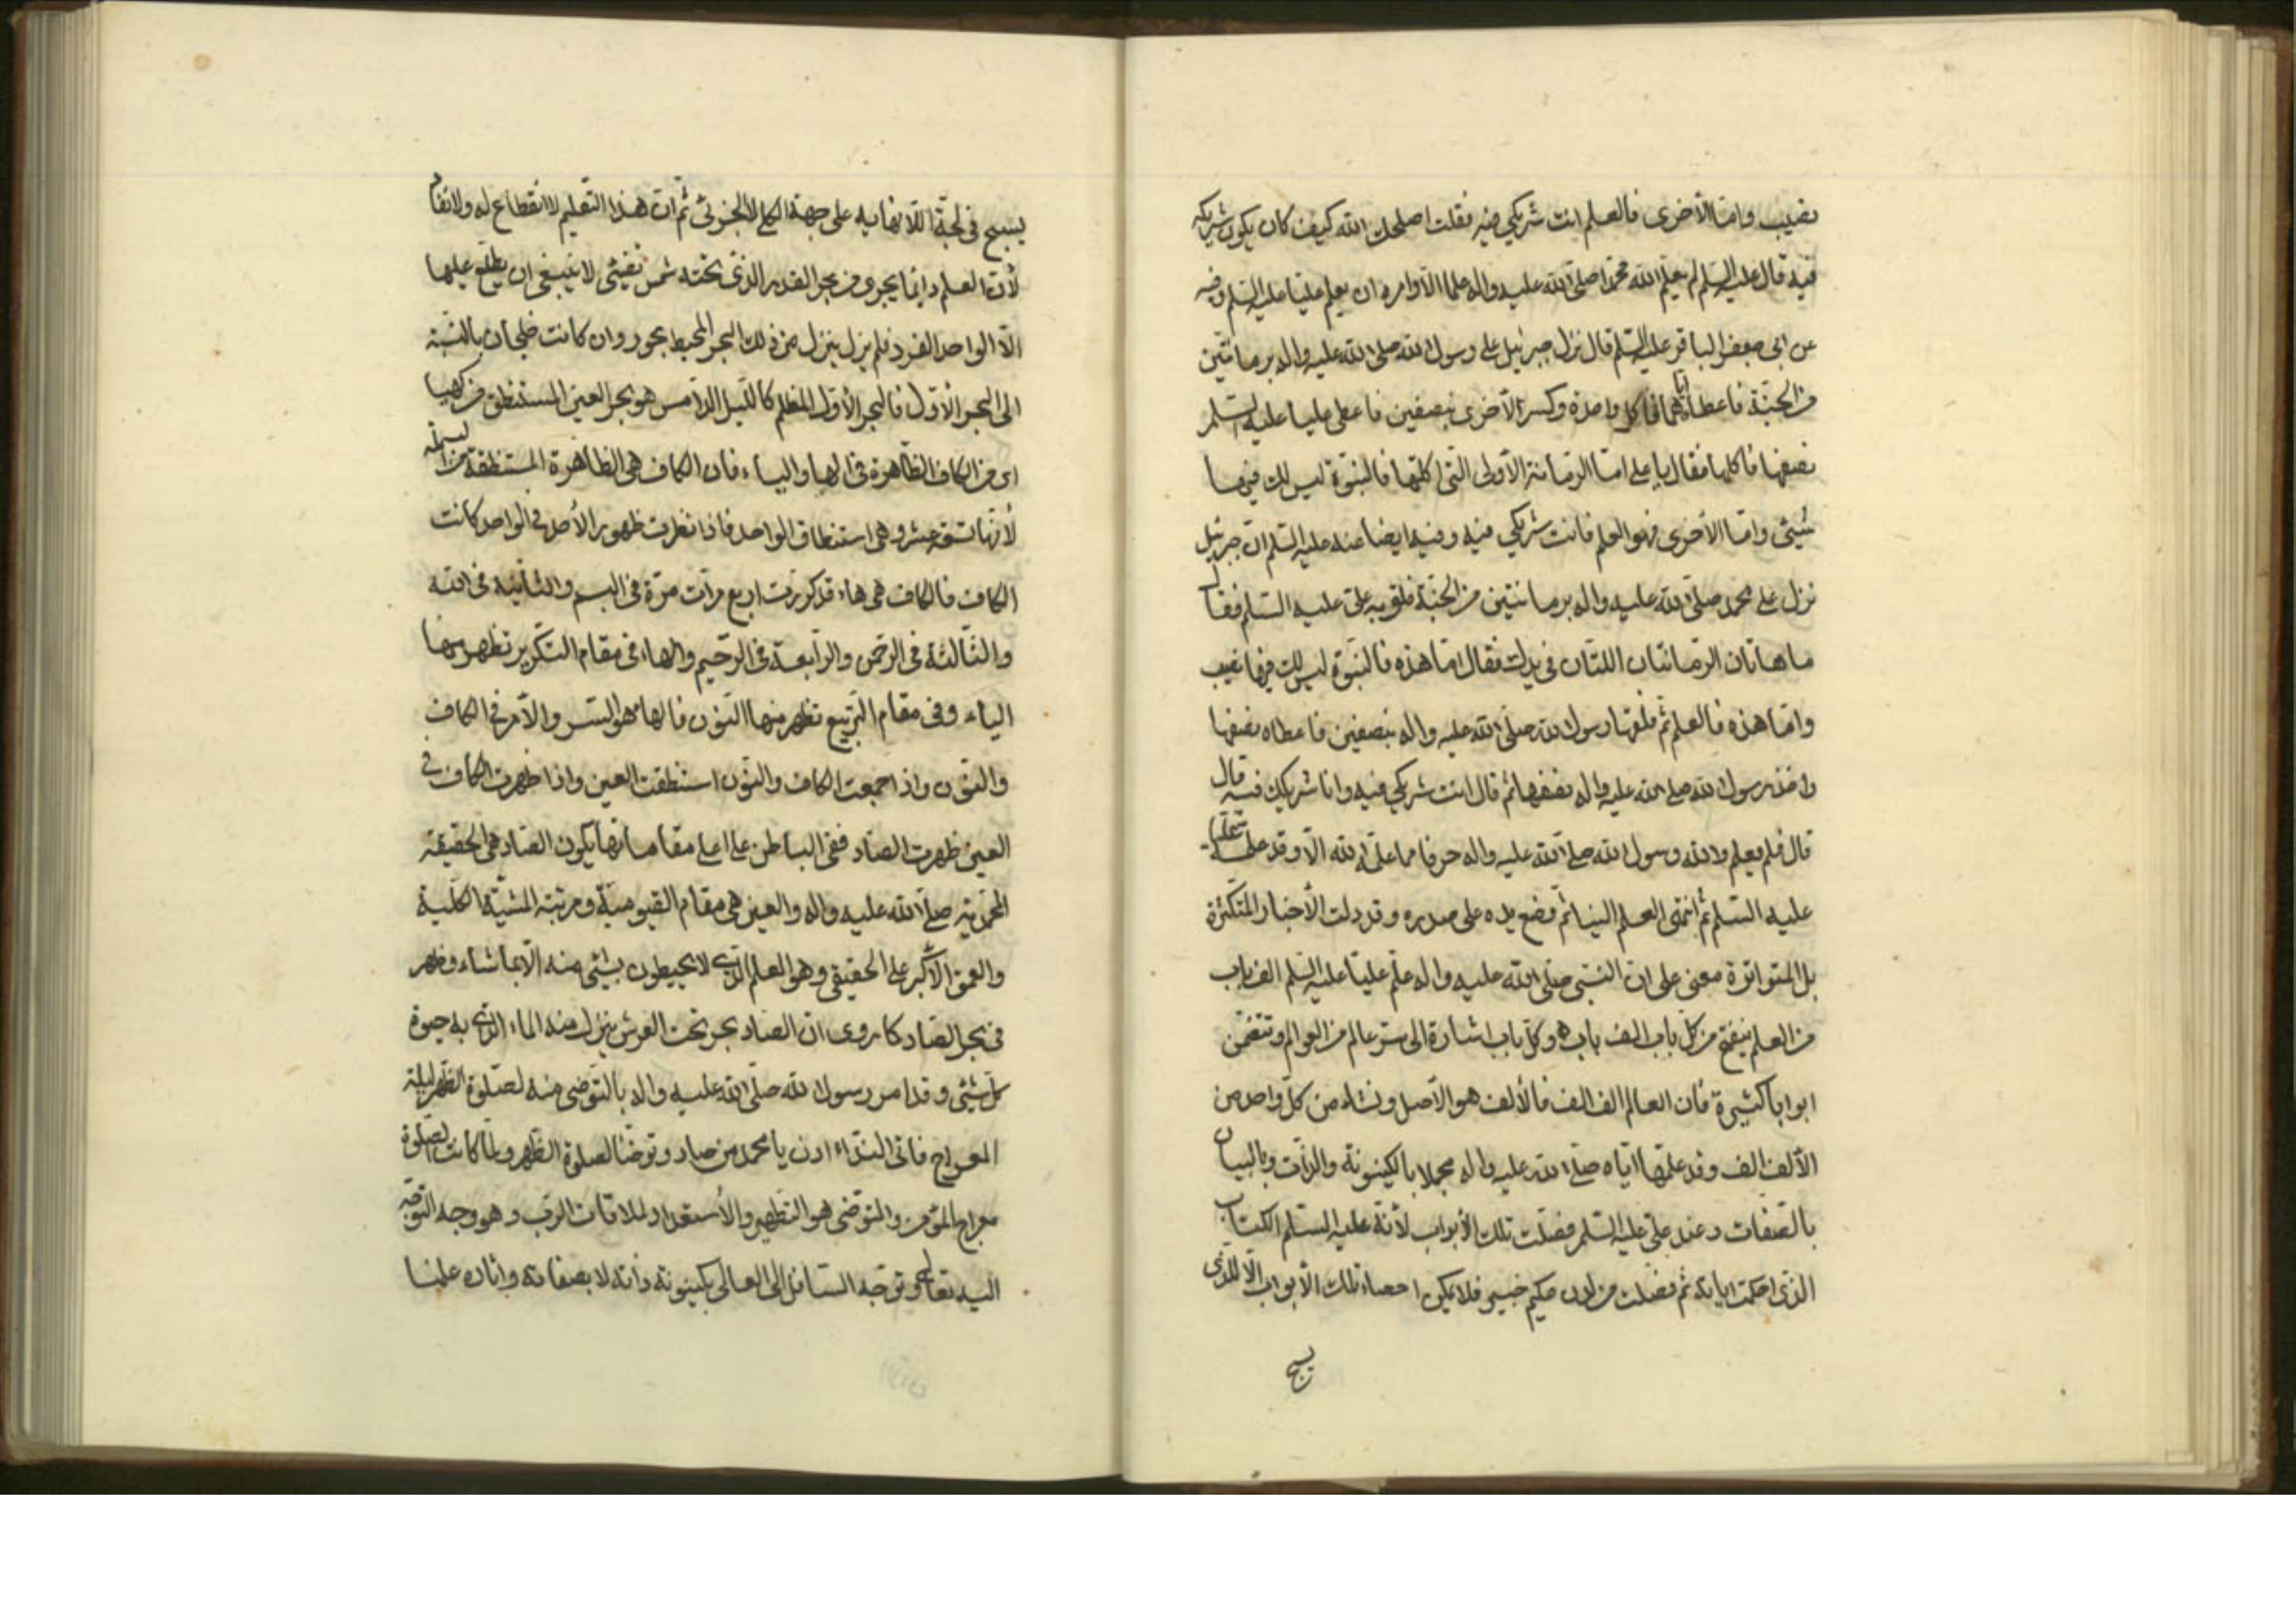 نصيب واما الأخرى فالعلم انت شريكي فيه فقلت اصلحك الله كيف كان يكون شريكه
فيه قال عليه السلم لم يعلم الله محمدا صلى الله عليه واله علما الا وامره ان يعلم عليا عليه السلم وفيه
عن ابي جعفر الباقر عليه السلم قال نزل جبرئيل على رسول الله صلى الله عليه واله برمانتين
من الجنة فاعطاه اياهما فاكل واحدة وكسر الأخرى بنصفين فاعطى عليا عليه السلم
نصفها فاكلها فقال يا علي اما الرمانة الأولى التي اكلتها فالنبوة ليس لك فيها
شيئ واما الأخرى فهو العلم فانت شريكي فيه وفيه ايضا عنه عليه السلم ان جبرئيل
نزل على محمد صلى الله عليه واله برمانتين من الجنة فلقيه علي عليه السلم فقال
ما هاتان الرمانتان اللتان في يدك فقال اما هذه فالنبوة ليس لك فيها نصيب
واما هذه فالعلم ثم فلقها رسول الله صلى الله عليه واله بنصفين فاعطاه نصفها
واخذ رسول الله صلى الله عليه واله نصفها ثم قال انت شريكي فيه وانا شريكك فيه قال
قال فلم يعلم والله رسول الله صلى الله عليه واله حرفا مما علمه الله الا وقد علمه عليا
عليه السلم ثم انتهى العلم الينا ثم وضع يده على صدره وقد دلت الأخبار المتكثرة
بل المتواترة معنى على ان النبي صلى الله عليه واله علم عليا عليه السلم الف باب
من العلم ينفتح من كل باب الف باب وكل باب اشارة الى سر عالم من العوالم وتتضمن
ابوابا كثيرة فان العالم الف الف فالألف هو الأصل ونشاء من كل واحد من
الألف الف وقد علمها اياه صلى الله عليه واله مجملا بالكينونة والذات وبالبيان
بالصفات وعند علي عليه السلم فصلت تلك الأبواب لأنه عليه السلم الكتاب
الذي احكمت اياته ثم فصلت من لدن حكيم خبير فلا يمكن احصاء تلك الأبواب الا للذي
يسبح
يسبح في لجة اللانهاية على جهة الكلي لا الجزئي ثم ان هذا التعليم لا انقطاع له ولا نفاد
لأن العلم دائما يجري من بحر القدر الذي تحته شمس تضيئ لا ينبغي ان يطلع عليها
الا الواحد الفرد فلم يزل ينزل من ذلك البحر المحيط بحور وان كانت خلجان بالنسبة
الى البحر الأول فالبحر الأول المظلم كالليل الدامس هو بحر العين المستنطق من كهيا
اى من الكاف الظاهرة في الهاء والياء فان الكاف هي الظاهرة المستنطقة من البسملة
لأنها تسعة عشر وهي استنطاق الواحد فاذا نظرت ظهور الأحد في الواحد كانت
الكاف فالكاف هي هاء قد كررت اربع مرات مرة في البسم والثانية في الله
والثالثة في الرحمن والرابعة في الرحيم والهاء في مقام التكرير تظهر منها
الياء وفي مقام التربيع تظهر منها النون فالهاء هو السر والأمر في الكاف
والنون واذا جمعت الكاف والنون استنطقت العين واذا ظهرت الكاف في
العين ظهرت الصاد ففي الباطن على اعلى مقاماتها يكون الصاد هي الحقيقة
المحمدية صلى الله عليه واله والعين هي مقام القيومية ومرتبة المشية الكلية
والعمق الأكبر على الحقيقي وهو العلم الذي لا يحيطون بشيئ منه الا بما شاء وظهر
في بحر الصاد كما روى ان الصاد بحر تحت العرش ينزل منه الماء الذي به حيوة
كل شيئ وقد امر رسول الله صلى الله عليه واله بالتوضى منه لصلوة الظهر ليلة
المعراج فاتى النداء ادن يا محمد من صاد وتوضأ لصلوة الظهر ولما كانت الصلوة
معراج المؤمن والتوضى هو التطهير والأستعداد لملاقات الرب وهو وجه التوجه
اليه تعالى وتوجه السافل الى العالى بكينونة ذاته لا بصفاته واثاره علمنا